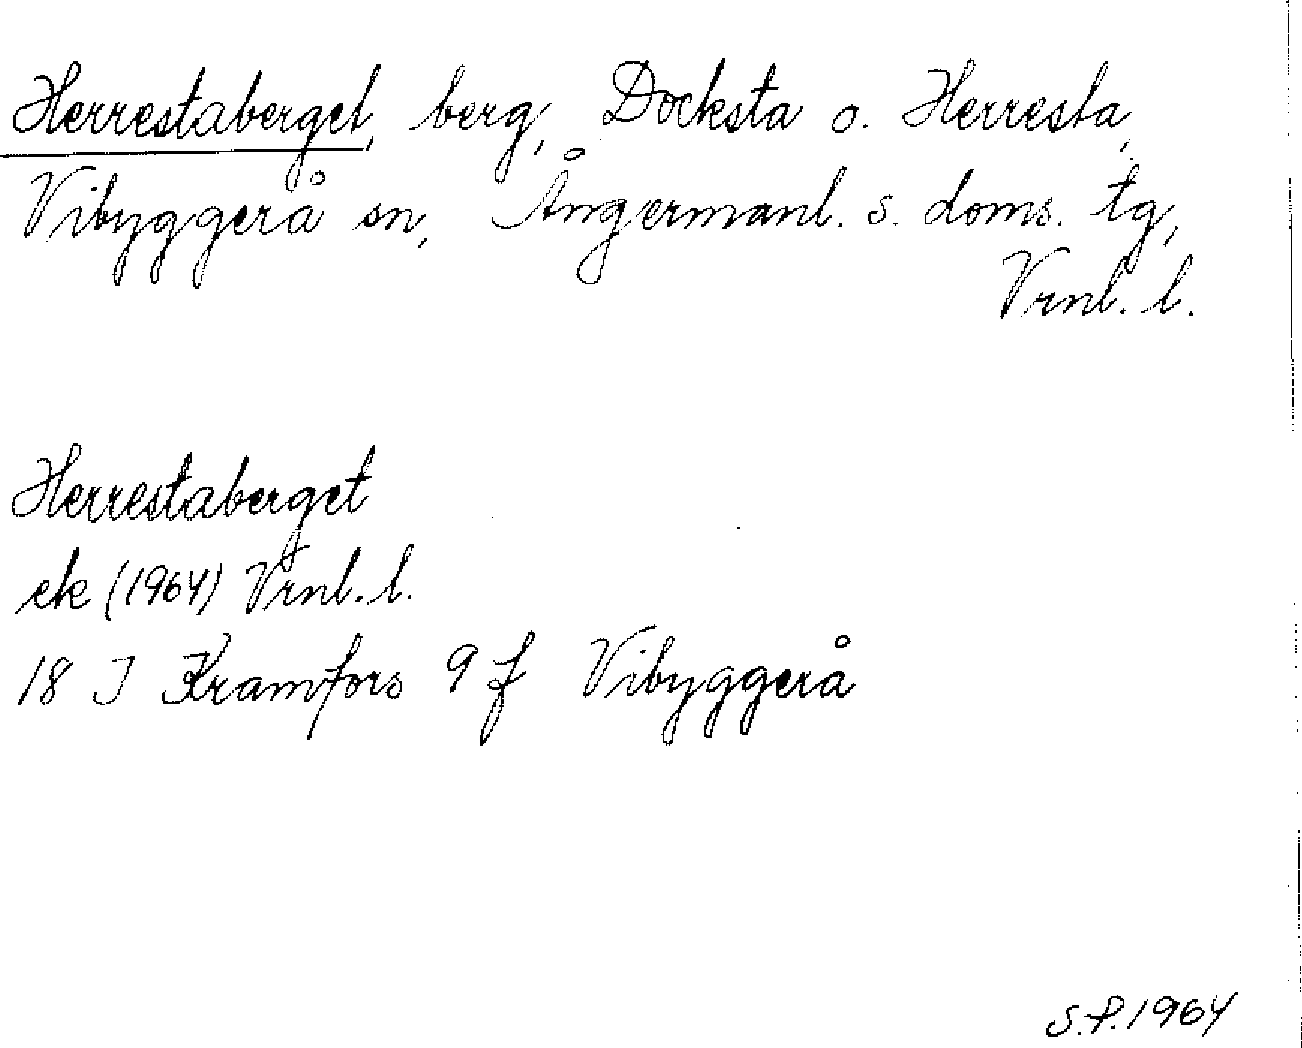 Herrestaberget, berg, Docksta o. Herresta,
Vibyggerå sn, Ångermanl. s. doms. tg,
Vrnl. l.
Herrestaberget
ek (1964) Vrnl. l.
18 J Kramfors 9 f Vibyggerå
S.P. 1964